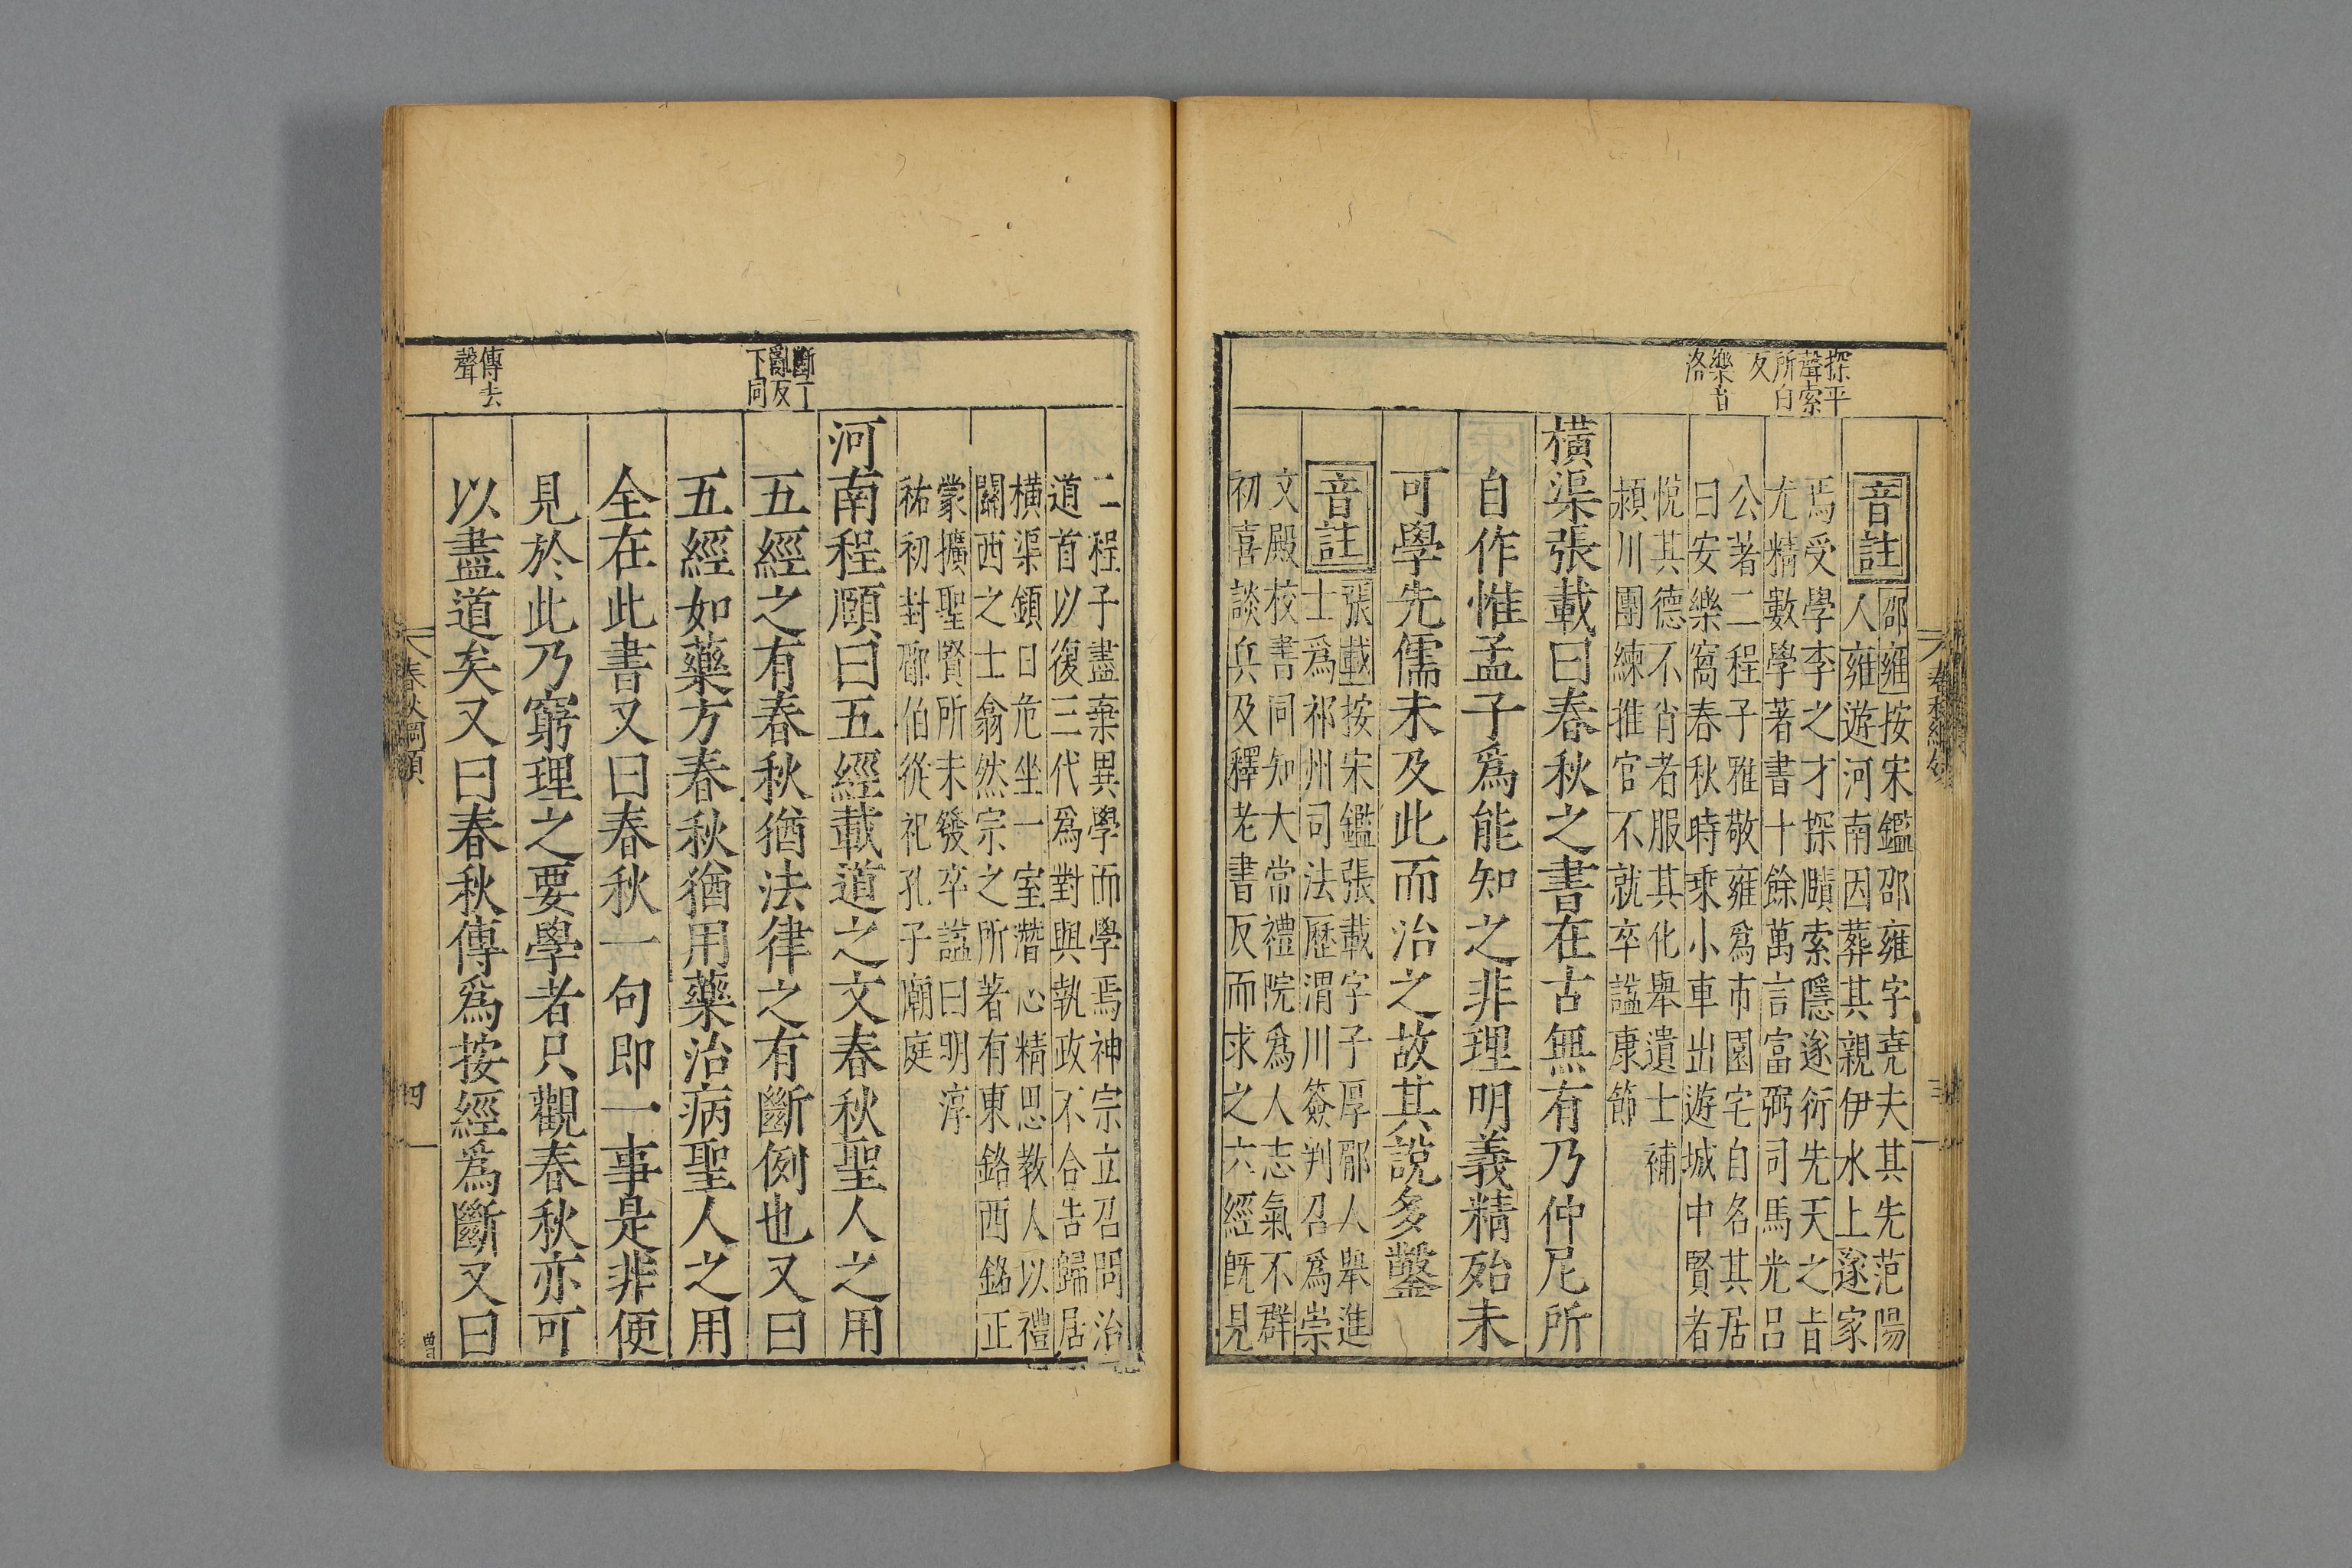 探平
聲索
所白
反
樂音
洛
音註
邵雍按宋鑑邵雍字堯夫其先范陽
人雍遊河南因葬其親伊水上遂家
焉受學李之才探賾索隱遂衍先天之旨
尤精數學著書十餘萬言富弼司馬光呂
公著二程子雅敬雍爲市園宅自名其居
曰安樂窩春秋時乘小車出遊城中賢者
悅其德不肖者服其化舉遺士補
潁川團練推官不就卒諡康節
橫渠張載曰春秋之書在古無有乃仲尼所
自作惟孟子爲能知之非理明義精殆未
可學先儒未及此而治之故其說多鑿
音註
張載按宋鑑張載字子厚郿人舉進
士爲祁州司法歷渭川簽判召爲崇
文殿校書同知大常禮院爲人志氣不群
初喜談兵及釋老書反而求之六經旣見
春秋綱領
三
二程子盡棄異學而學焉神宗立召問治
道首以復三代爲對與執政不合告歸居
橫渠鎮日危坐一室潛心精思教人以禮
關西之士翕然宗之所著有東銘西銘正
蒙擴聖賢所未發卒諡曰明淳
祐初封郿伯從祀孔子廟庭
斷丁
亂反
下同
河南程頤曰五經載道之文春秋聖人之用
五經之有春秋猶法律之有斷例也又曰
五經如藥方春秋猶用藥治病聖人之用
全在此書又曰春秋一句即一事是非便
見於此乃窮理之要學者只觀春秋亦可
傳去
聲
以盡道矣又曰春秋傳爲按經爲斷又曰
春秋綱領
四
曾